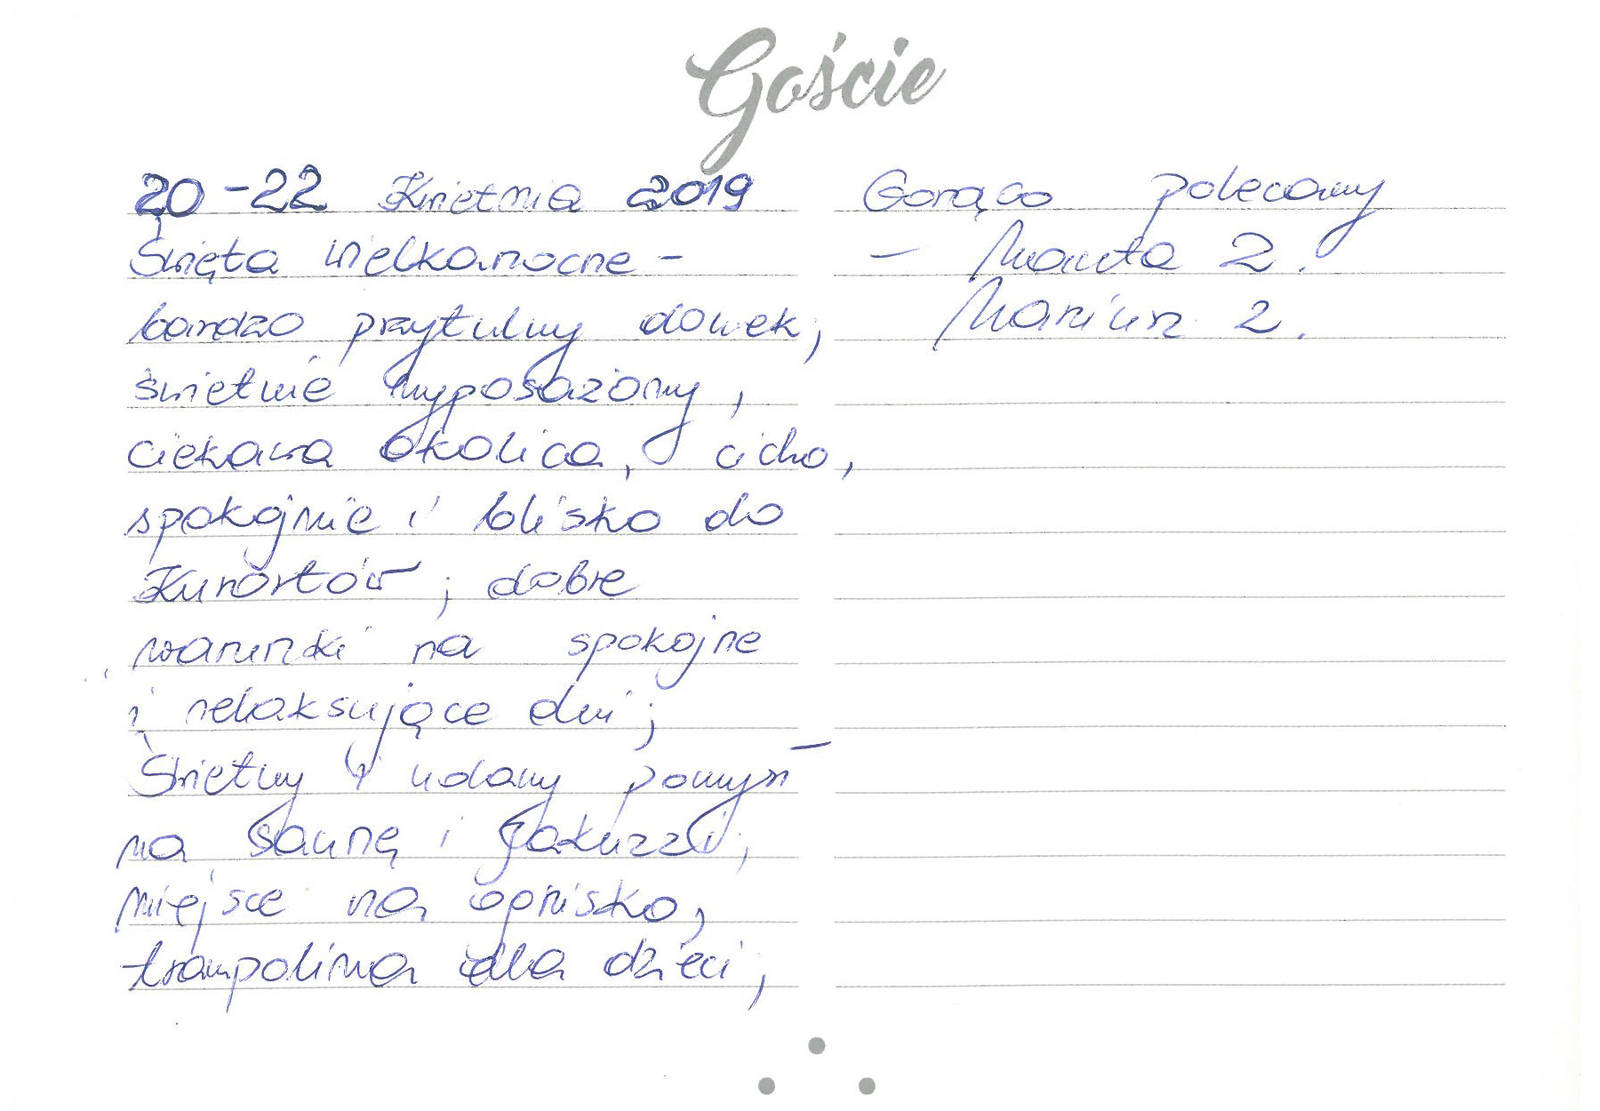 Goście
20-22 Kwietnia 2019
Święta wielkanocne -
bardzo przytulny domek,
świetnie wyposażony,
ciekawa okolica, cicho,
spokojnie i blisko do
Kurortów; dobre
warunki na spokojne
i relaksujące dni;
Świetny i udany pomysł
na saunę i jakuzzi,
miejsce na ognisko,
trampolina dla dzieci,
Gorąco polecamy
- Marta Z.
Mariusz Z.